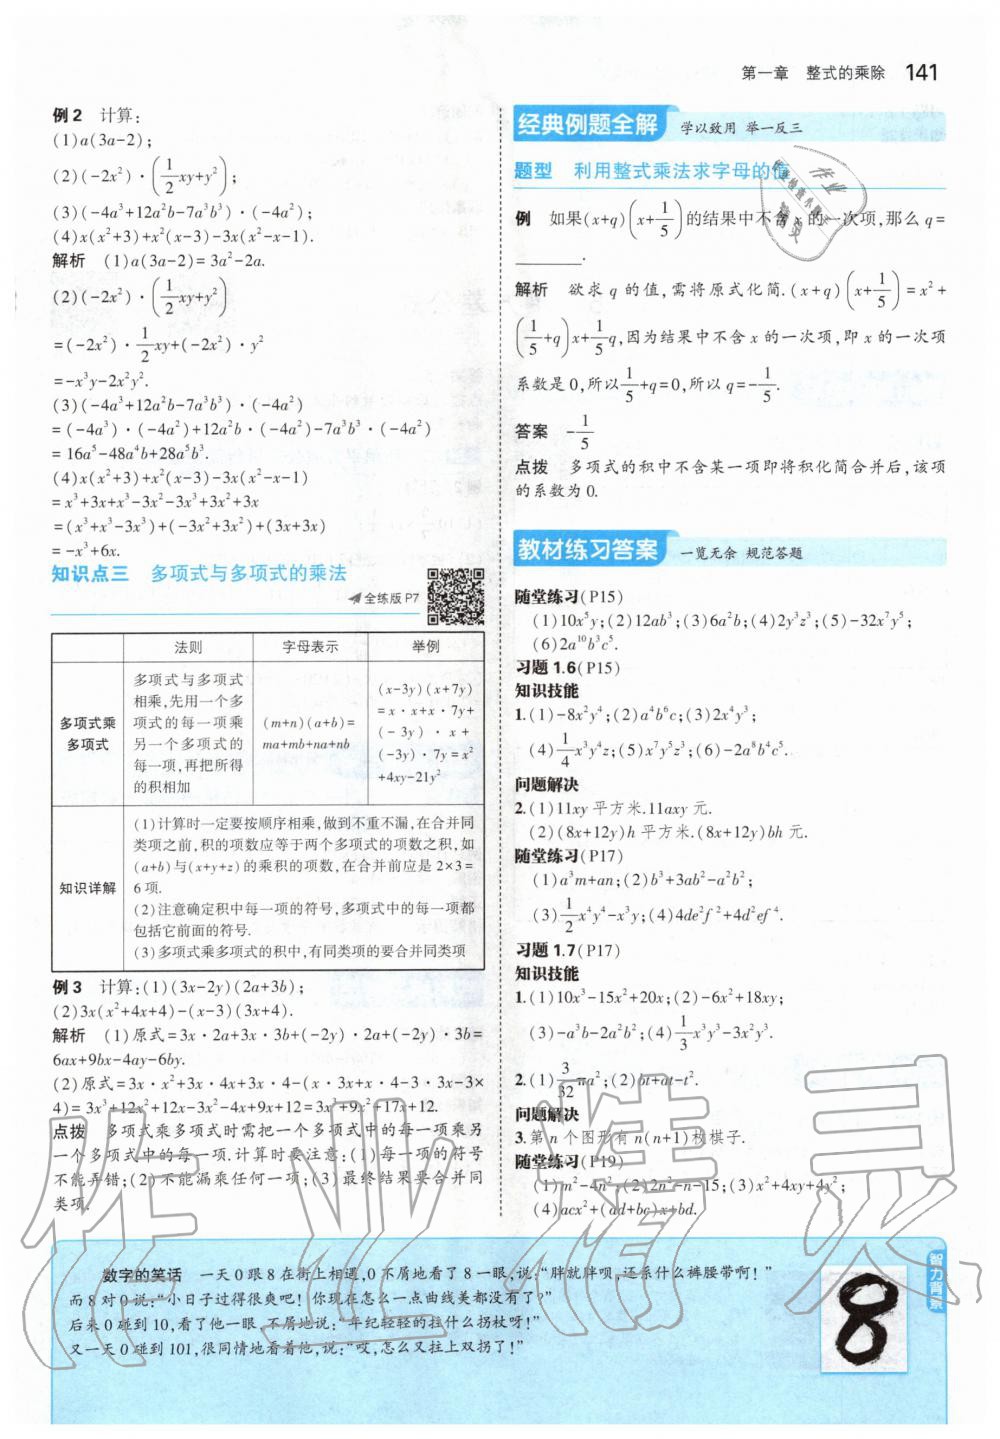 第一章 整式的乘除 141
例2 计算:
(1)a(3a-2);
(2)(-2x²)·(1/2xy+y²);
(3)(-4a³+12a²b-7a³b³)·(-4a²);
(4)x(x²+3)+x²(x-3)-3x(x²-x-1).
解析 (1)a(3a-2)=3a²-2a.
(2)(-2x²)·(1/2xy+y²)
=(-2x²)·1/2xy+(-2x²)·y²
=-x³y-2x²y².
(3)(-4a³+12a²b-7a³b³)·(-4a²)
=(-4a³)·(-4a²)+12a²b·(-4a²)-7a³b³·(-4a²)
=16a⁵-48a⁴b+28a⁵b³.
(4)x(x²+3)+x²(x-3)-3x(x²-x-1)
=x³+3x+x³-3x²-3x³+3x²+3x
=(x³+x³-3x³)+(-3x²+3x²)+(3x+3x)
=-x³+6x.
知识点三 多项式与多项式的乘法
全练版P7
法则 字母表示 举例
多项式乘
多项式
多项式与多项式
相乘,先用一个多
项式的每一项乘
另一个多项式的
每一项,再把所得
的积相加
(m+n)(a+b)=
ma+mb+na+nb
(x-3y)(x+7y)
=x·x+x·7y+
(-3y)·x+
(-3y)·7y=x²
+4xy-21y²
知识详解
(1)计算时一定要按顺序相乘,做到不重不漏,在合并同
类项之前,积的项数应等于两个多项式的项数之积,如
(a+b)与(x+y+z)的乘积的项数,在合并前应是2×3=
6项.
(2)注意确定积中每一项的符号,多项式中的每一项都
包括它前面的符号.
(3)多项式乘多项式的积中,有同类项的要合并同类项
例3 计算:(1)(3x-2y)(2a+3b);
(2)3x(x²+4x+4)-(x-3)(3x+4).
解析 (1)原式=3x·2a+3x·3b+(-2y)·2a+(-2y)·3b=
6ax+9bx-4ay-6by.
(2)原式=3x·x²+3x·4x+3x·4-(x·3x+x·4-3·3x-3×
4)=3x³+12x²+12x-3x²-4x+9x+12=3x³+9x²+17x+12.
点拨 多项式乘多项式时需把一个多项式中的每一项乘另
一个多项式中的每一项.计算时要注意:(1)每一项的符号
不能弄错;(2)不能漏乘任何一项;(3)最终结果要合并同
类项.
经典例题全解 学以致用 举一反三
题型 利用整式乘法求字母的值
例 如果(x+q)(x+1/5)的结果中不含x的一次项,那么q=
________.
解析 欲求q的值,需将原式化简.(x+q)(x+1/5)=x²+
(1/5+q)x+1/5q,因为结果中不含x的一次项,即x的一次项
系数是0,所以1/5+q=0,所以q=-1/5.
答案 -1/5
点拨 多项式的积中不含某一项即将积化简合并后,该项
的系数为0.
教材练习答案 一览无余 规范答题
随堂练习(P15)
(1)10x⁵y;(2)12ab³;(3)6a²b;(4)2y³z³;(5)-32x⁷y⁵;
(6)2a¹⁰b³c⁵.
习题1.6(P15)
知识技能
1.(1)-8x²y⁴;(2)a⁴b⁶c;(3)2x⁴y³;
(4)1/4x³y⁴z;(5)x⁷y⁵z³;(6)-2a⁸b⁴c⁵.
问题解决
2.(1)11xy平方米.11axy元.
(2)(8x+12y)h平方米.(8x+12y)bh元.
随堂练习(P17)
(1)a³m+an;(2)b³+3ab²-a²b²;
(3)1/2x⁴y⁴-x³y;(4)4de²f²+4d²ef⁴.
习题1.7(P17)
知识技能
1.(1)10x³-15x²+20x;(2)-6x²+18xy;
(3)-a³b-2a²b²;(4)1/3x³y³-3x²y³.
2.(1)3/32πa²;(2)bt+at-t².
问题解决
3.第n个图形有n(n+1)枚棋子.
随堂练习(P19)
(1)m²-4n²;(2)2n²-n-15;(3)x²+4xy+4y²;
(4)acx²+(ad+bc)x+bd.
智力背景
数字的笑话 一天0跟8在街上相遇,0不屑地看了8一眼,说:“胖就胖呗,还系什么裤腰带啊!”
而8对0说:“小日子过得很爽吧!你现在怎么一点曲线美都没有了?”
后来0碰到10,看了他一眼,不屑地说:“年纪轻轻的拄什么拐杖呀!”
又一天0碰到101,很同情地看着他,说:“哎,怎么又拄上双拐了!”
8
作业精灵